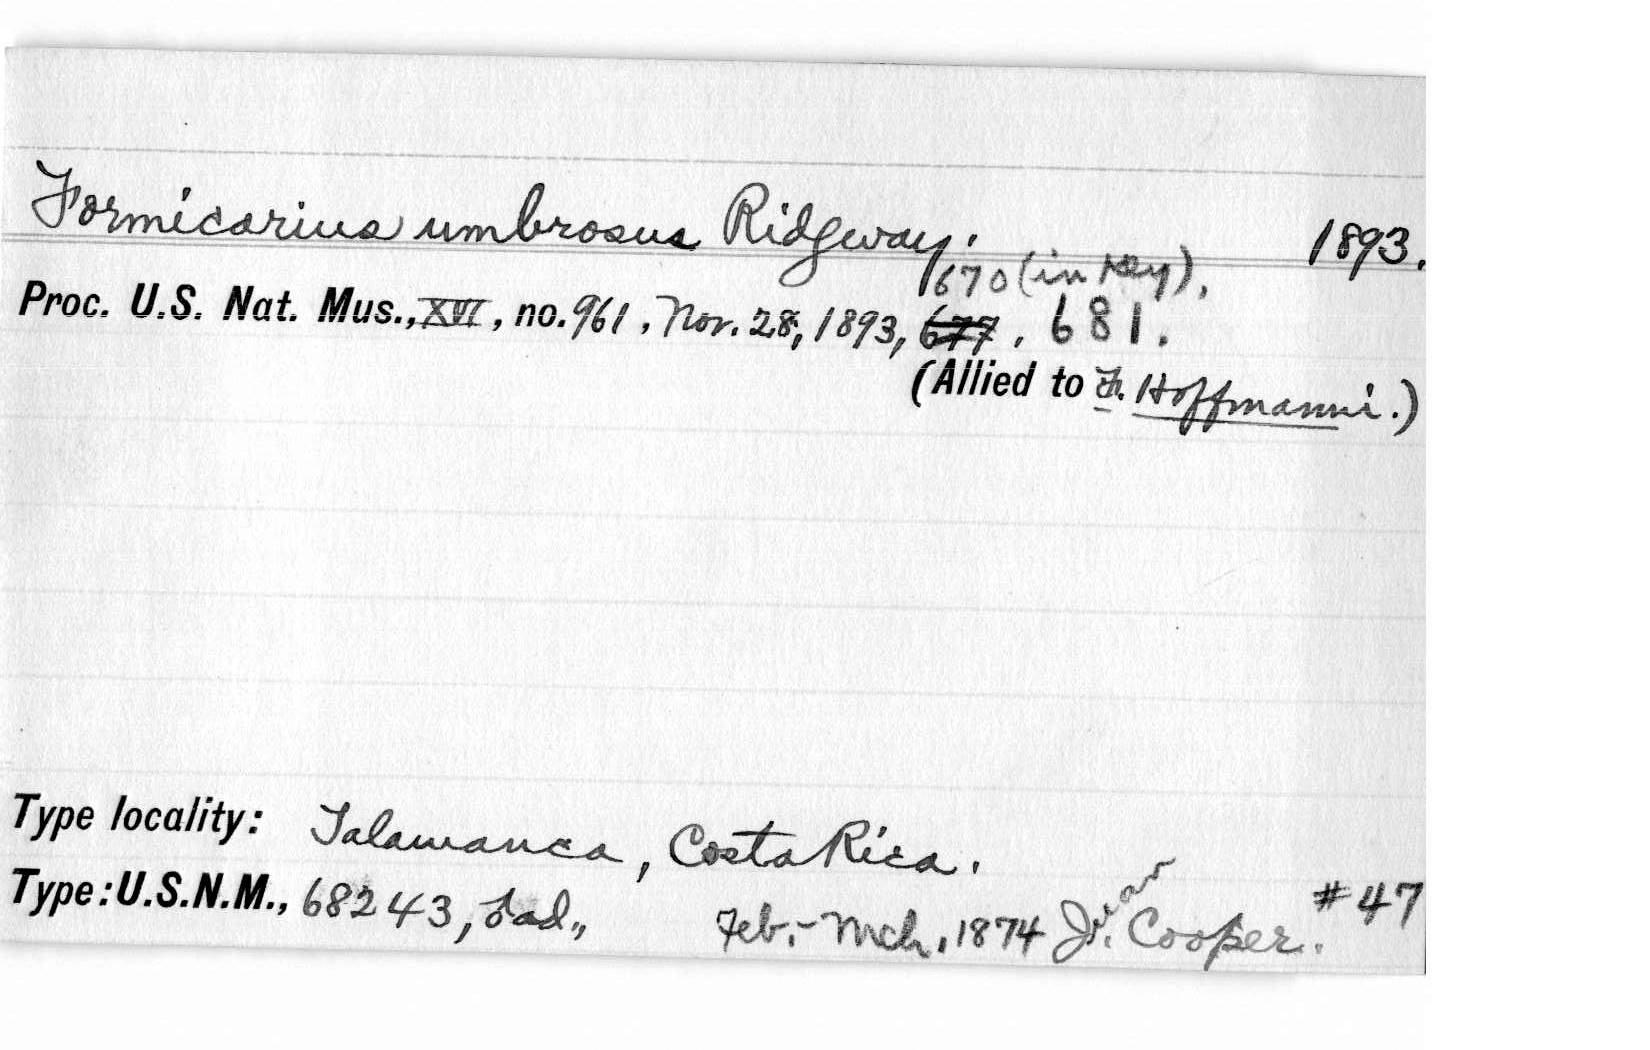 Formicarius umbrosus Ridgway. 1893.
670 (in Key),
Proc. U.S. Nat. Mus., XVI, no. 961, Nov. 28, 1893, 677, 681.
(Allied to F. Hoffmanni.)
Type locality: Talamanca, Costa Rica.
Type: U.S.N.M., 68243, ♂ ad., Feb.-Mch, 1874 Juan Cooper. #47